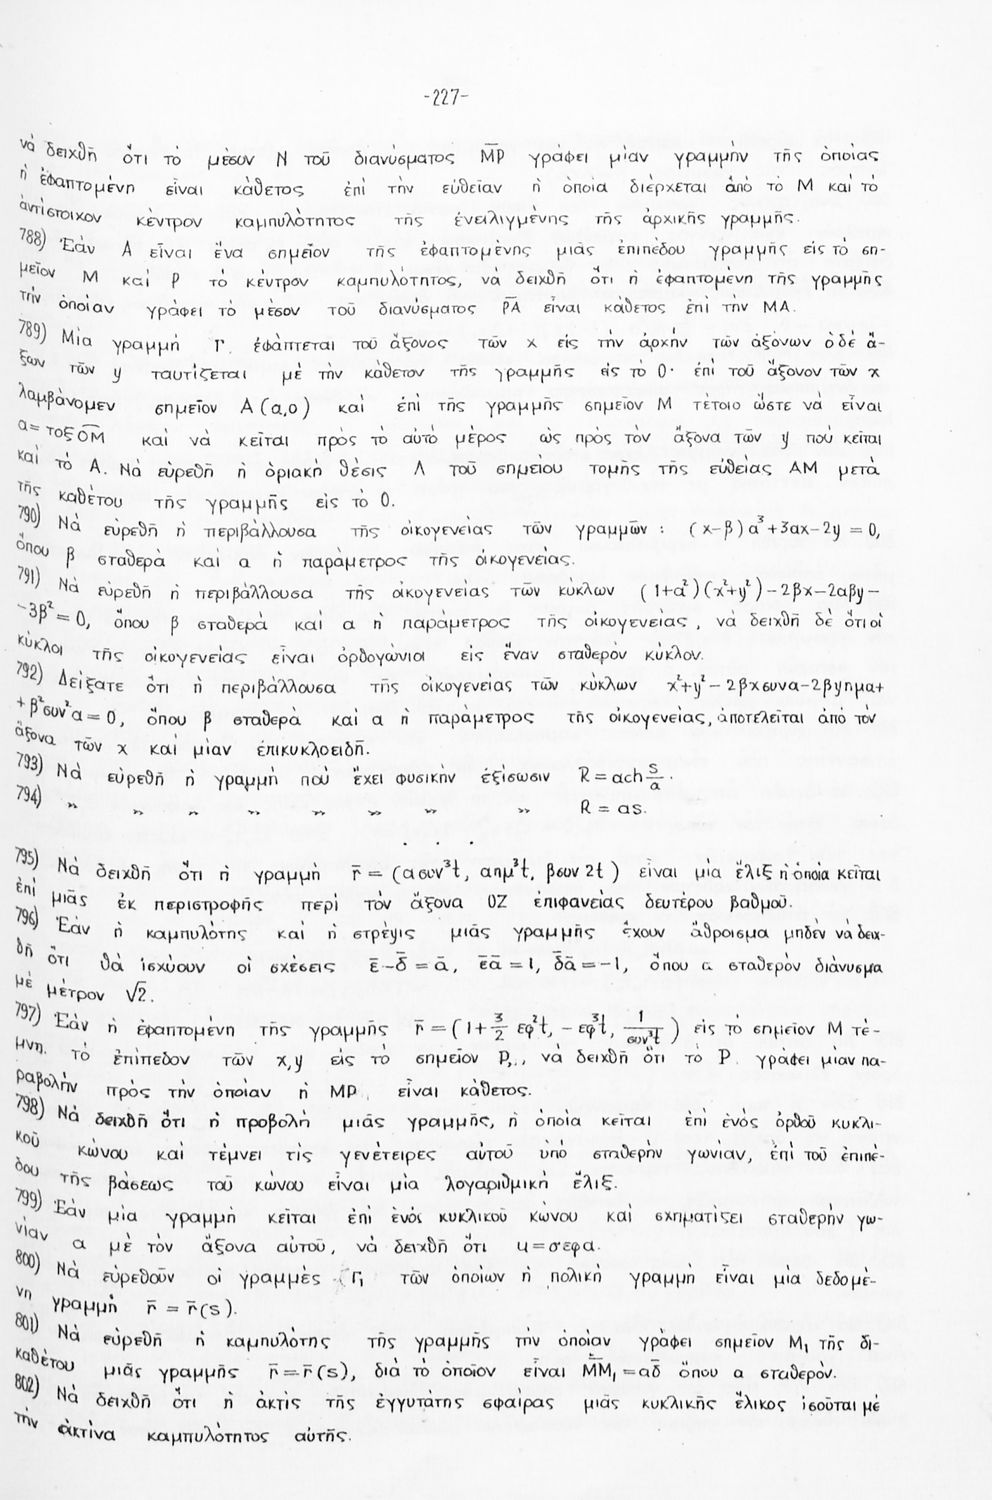 -227-
νὰ δειχθῆ ὅτι τὸ μέσον Ν τοῦ διανύσματος M̅P̅ γράφει μίαν γραμμὴν τῆς ὁποίας
ἡ ἐφαπτομένη εἶναι κάθετος ἐπὶ τὴν εὐθεῖαν ἡ ὁποία διέρχεται ἀπὸ τὸ Μ καὶ τὸ
ἀντίστοιχον κέντρον καμπυλότητος τῆς ἐνειλιγμένης τῆς ἀρχικῆς γραμμῆς.
788) Ἐὰν Α εἶναι ἕνα σημεῖον τῆς ἐφαπτομένης μιᾶς ἐπιπέδου γραμμῆς εἰς τὸ ση-
μεῖον Μ καὶ Ρ τὸ κέντρον καμπυλότητος, νὰ δειχθῆ ὅτι ἡ ἐφαπτομένη τῆς γραμμῆς
τὴν ὁποίαν γράφει τὸ μέσον τοῦ διανύσματος P̅A̅ εἶναι κάθετος ἐπὶ τὴν ΜΑ.
789) Μία γραμμὴ Γ. ἐφάπτεται τοῦ ἄξονος τῶν x εἰς τὴν ἀρχὴν τῶν ἀξόνων ὁ δὲ ἄ-
ξων τῶν y ταυτίζεται μὲ τὴν κάθετον τῆς γραμμῆς εἰς τὸ Ο· ἐπὶ τοῦ ἄξονον τῶν x
λαμβάνομεν σημεῖον Α(α,ο) καὶ ἐπὶ τῆς γραμμῆς σημεῖον Μ τέτοιο ὥστε νὰ εἶναι
α = τοξ O͡M καὶ νὰ κεῖται πρὸς τὸ αὐτὸ μέρος ὡς πρὸς τὸν ἄξονα τῶν y ποὺ κεῖται
καὶ τὸ Α. Νὰ εὑρεθῆ ἡ ὁριακὴ θέσις Λ τοῦ σημείου τομῆς τῆς εὐθείας ΑΜ μετὰ
τῆς καθέτου τῆς γραμμῆς εἰς τὸ Ο.
790) Νὰ εὑρεθῆ ἡ περιβάλλουσα τῆς οἰκογενείας τῶν γραμμῶν : (x-β)α³+3αx-2y = 0,
ὅπου β σταθερὰ καὶ α ἡ παράμετρος τῆς οἰκογενείας.
791) Νὰ εὑρεθῆ ἡ περιβάλλουσα τῆς οἰκογενείας τῶν κύκλων (1+α²)(x²+y²)-2βx-2αβy-
-3β² = 0, ὅπου β σταθερὰ καὶ α ἡ παράμετρος τῆς οἰκογενείας, νὰ δειχθῆ δὲ ὅτι οἱ
κύκλοι τῆς οἰκογενείας εἶναι ὀρθογώνιοι εἰς ἕναν σταθερὸν κύκλον.
792) Δείξατε ὅτι ἡ περιβάλλουσα τῆς οἰκογενείας τῶν κύκλων x²+y²-2βxσυνα-2βyημα+
+β²συν²α = 0, ὅπου β σταθερὰ καὶ α ἡ παράμετρος τῆς οἰκογενείας, ἀποτελεῖται ἀπὸ τὸν
ἄξονα τῶν x καὶ μίαν ἐπικυκλοειδῆ.
793) Νὰ εὑρεθῆ ἡ γραμμὴ ποὺ ἔχει φυσικὴν ἐξίσωσιν R = αch s/α.
794) » » » » » » » R = αs.
. . .
795) Νὰ δειχθῆ ὅτι ἡ γραμμὴ r̅ = (ασυν³t, αημ³t, βσυν2t) εἶναι μία ἕλιξ ἡ ὁποία κεῖται
ἐπὶ μιᾶς ἐκ περιστροφῆς περὶ τὸν ἄξονα ΟΖ ἐπιφανείας δευτέρου βαθμοῦ.
796) Ἐὰν ἡ καμπυλότης καὶ ἡ στρέψις μιᾶς γραμμῆς ἔχουν ἄθροισμα μηδὲν νὰ δειχ-
θῆ ὅτι θὰ ἰσχύουν οἱ σχέσεις ε̅-δ̅ = α̅, ε̅α̅ = 1, δ̅α̅ = -1, ὅπου α σταθερὸν διάνυσμα
μὲ μέτρον √2.
797) Ἐὰν ἡ ἐφαπτομένη τῆς γραμμῆς r̅ = (1+3/2 εφ²t, -εφ³t, 1/συν³t) εἰς τὸ σημεῖον Μ τέ-
μνη. τὸ ἐπίπεδον τῶν x,y εἰς τὸ σημεῖον Ρ,., νὰ δειχθῆ ὅτι τὸ Ρ. γράφει μίαν πα-
ραβολὴν πρὸς τὴν ὁποίαν ἡ ΜΡ. εἶναι κάθετος.
798) Νὰ δειχθῆ ὅτι ἡ προβολὴ μιᾶς γραμμῆς, ἡ ὁποία κεῖται ἐπὶ ἑνὸς ὀρθοῦ κυκλι-
κοῦ κώνου καὶ τέμνει τὶς γενέτειρες αὐτοῦ ὑπὸ σταθερὴν γωνίαν, ἐπὶ τοῦ ἐπιπέ-
δου τῆς βάσεως τοῦ κώνου εἶναι μία λογαριθμικὴ ἕλιξ.
799) Ἐὰν μία γραμμὴ κεῖται ἐπὶ ἑνὸς κυκλικοῦ κώνου καὶ σχηματίζει σταθερὴν γω-
νίαν α μὲ τὸν ἄξονα αὐτοῦ, νὰ δειχθῆ ὅτι u = σεφα.
800) Νὰ εὑρεθοῦν οἱ γραμμὲς Γ₁ τῶν ὁποίων ἡ πολικὴ γραμμὴ εἶναι μία δεδομέ-
νη γραμμὴ r̅ = r̅(s).
801) Νὰ εὑρεθῆ ἡ καμπυλότης τῆς γραμμῆς τὴν ὁποίαν γράφει σημεῖον Μ₁ τῆς δι-
καθέτου μιᾶς γραμμῆς r̅ = r̅(s), διὰ τὸ ὁποῖον εἶναι M̅M̅₁ = αδ̅ ὅπου α σταθερόν.
802) Νὰ δειχθῆ ὅτι ἡ ἀκτὶς τῆς ἐγγυτάτης σφαίρας μιᾶς κυκλικῆς ἕλικος ἰσοῦται μὲ
τὴν ἀκτίνα καμπυλότητος αὐτῆς.